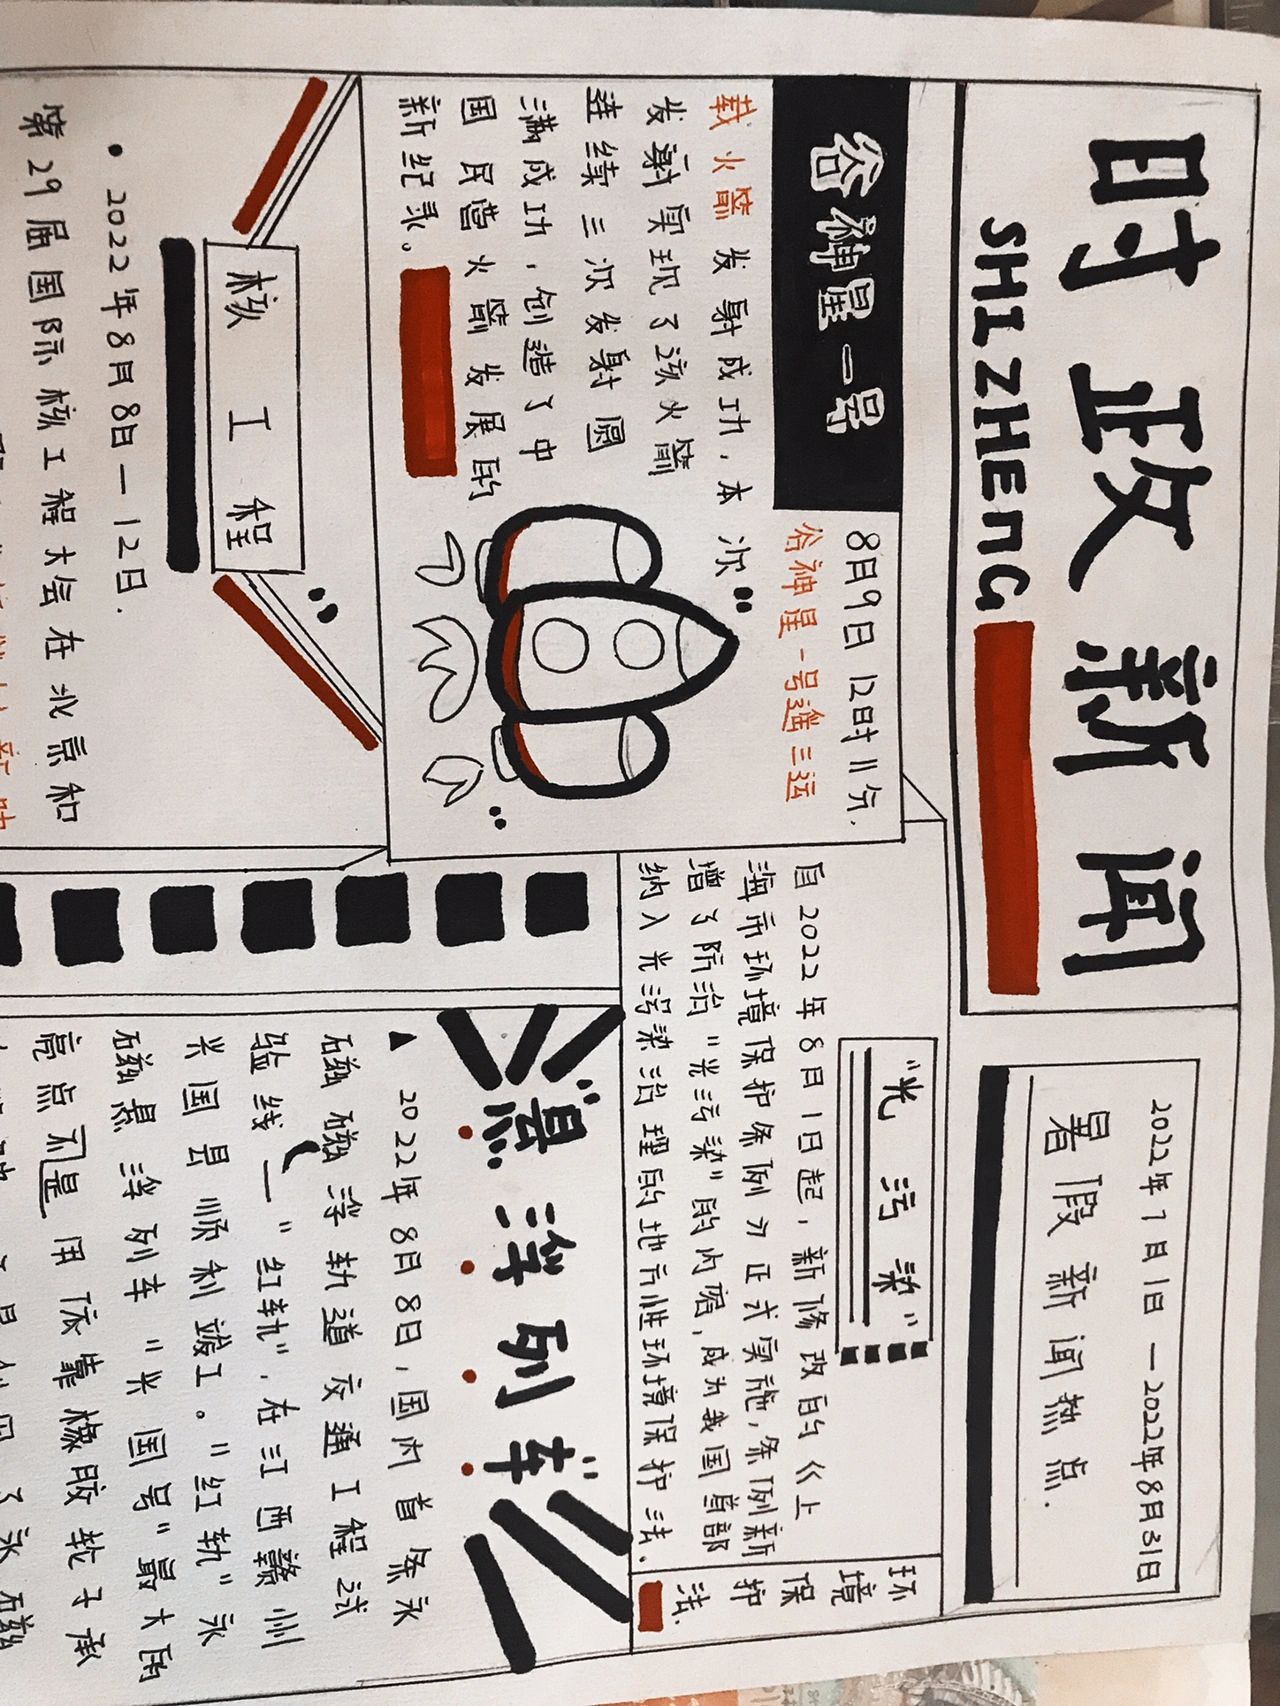 时政新闻
SHIZHENG
2022年7月1日—2022年8月31日
暑假新闻热点.
谷神星一号
8月9日12时11分.
谷神星一号遥三运
载火箭发射成功,本次
发射实现了该火箭
连续三次发射圆
满成功,创造了中
国民营火箭发展的
新纪录。
"光污染"
自2022年8月1日起,新修改的《上
海市环境保护条例》正式实施,条例新
增了防治"光污染"的内容,成为我国首部
纳入光污染治理的地方性环境保护法.
环
境
保
护
法.
核工程
•2022年8月8日—12日.
第29届国际核工程大会在北京和
"悬浮列车"
▲2022年8月8日,国内首条永
磁磁浮轨道交通工程试
验线—"红轨",在江西赣州
兴国县顺利竣工。"红轨"永
磁悬浮列车"兴国号"最大的
亮点不是用依靠橡胶轮子承